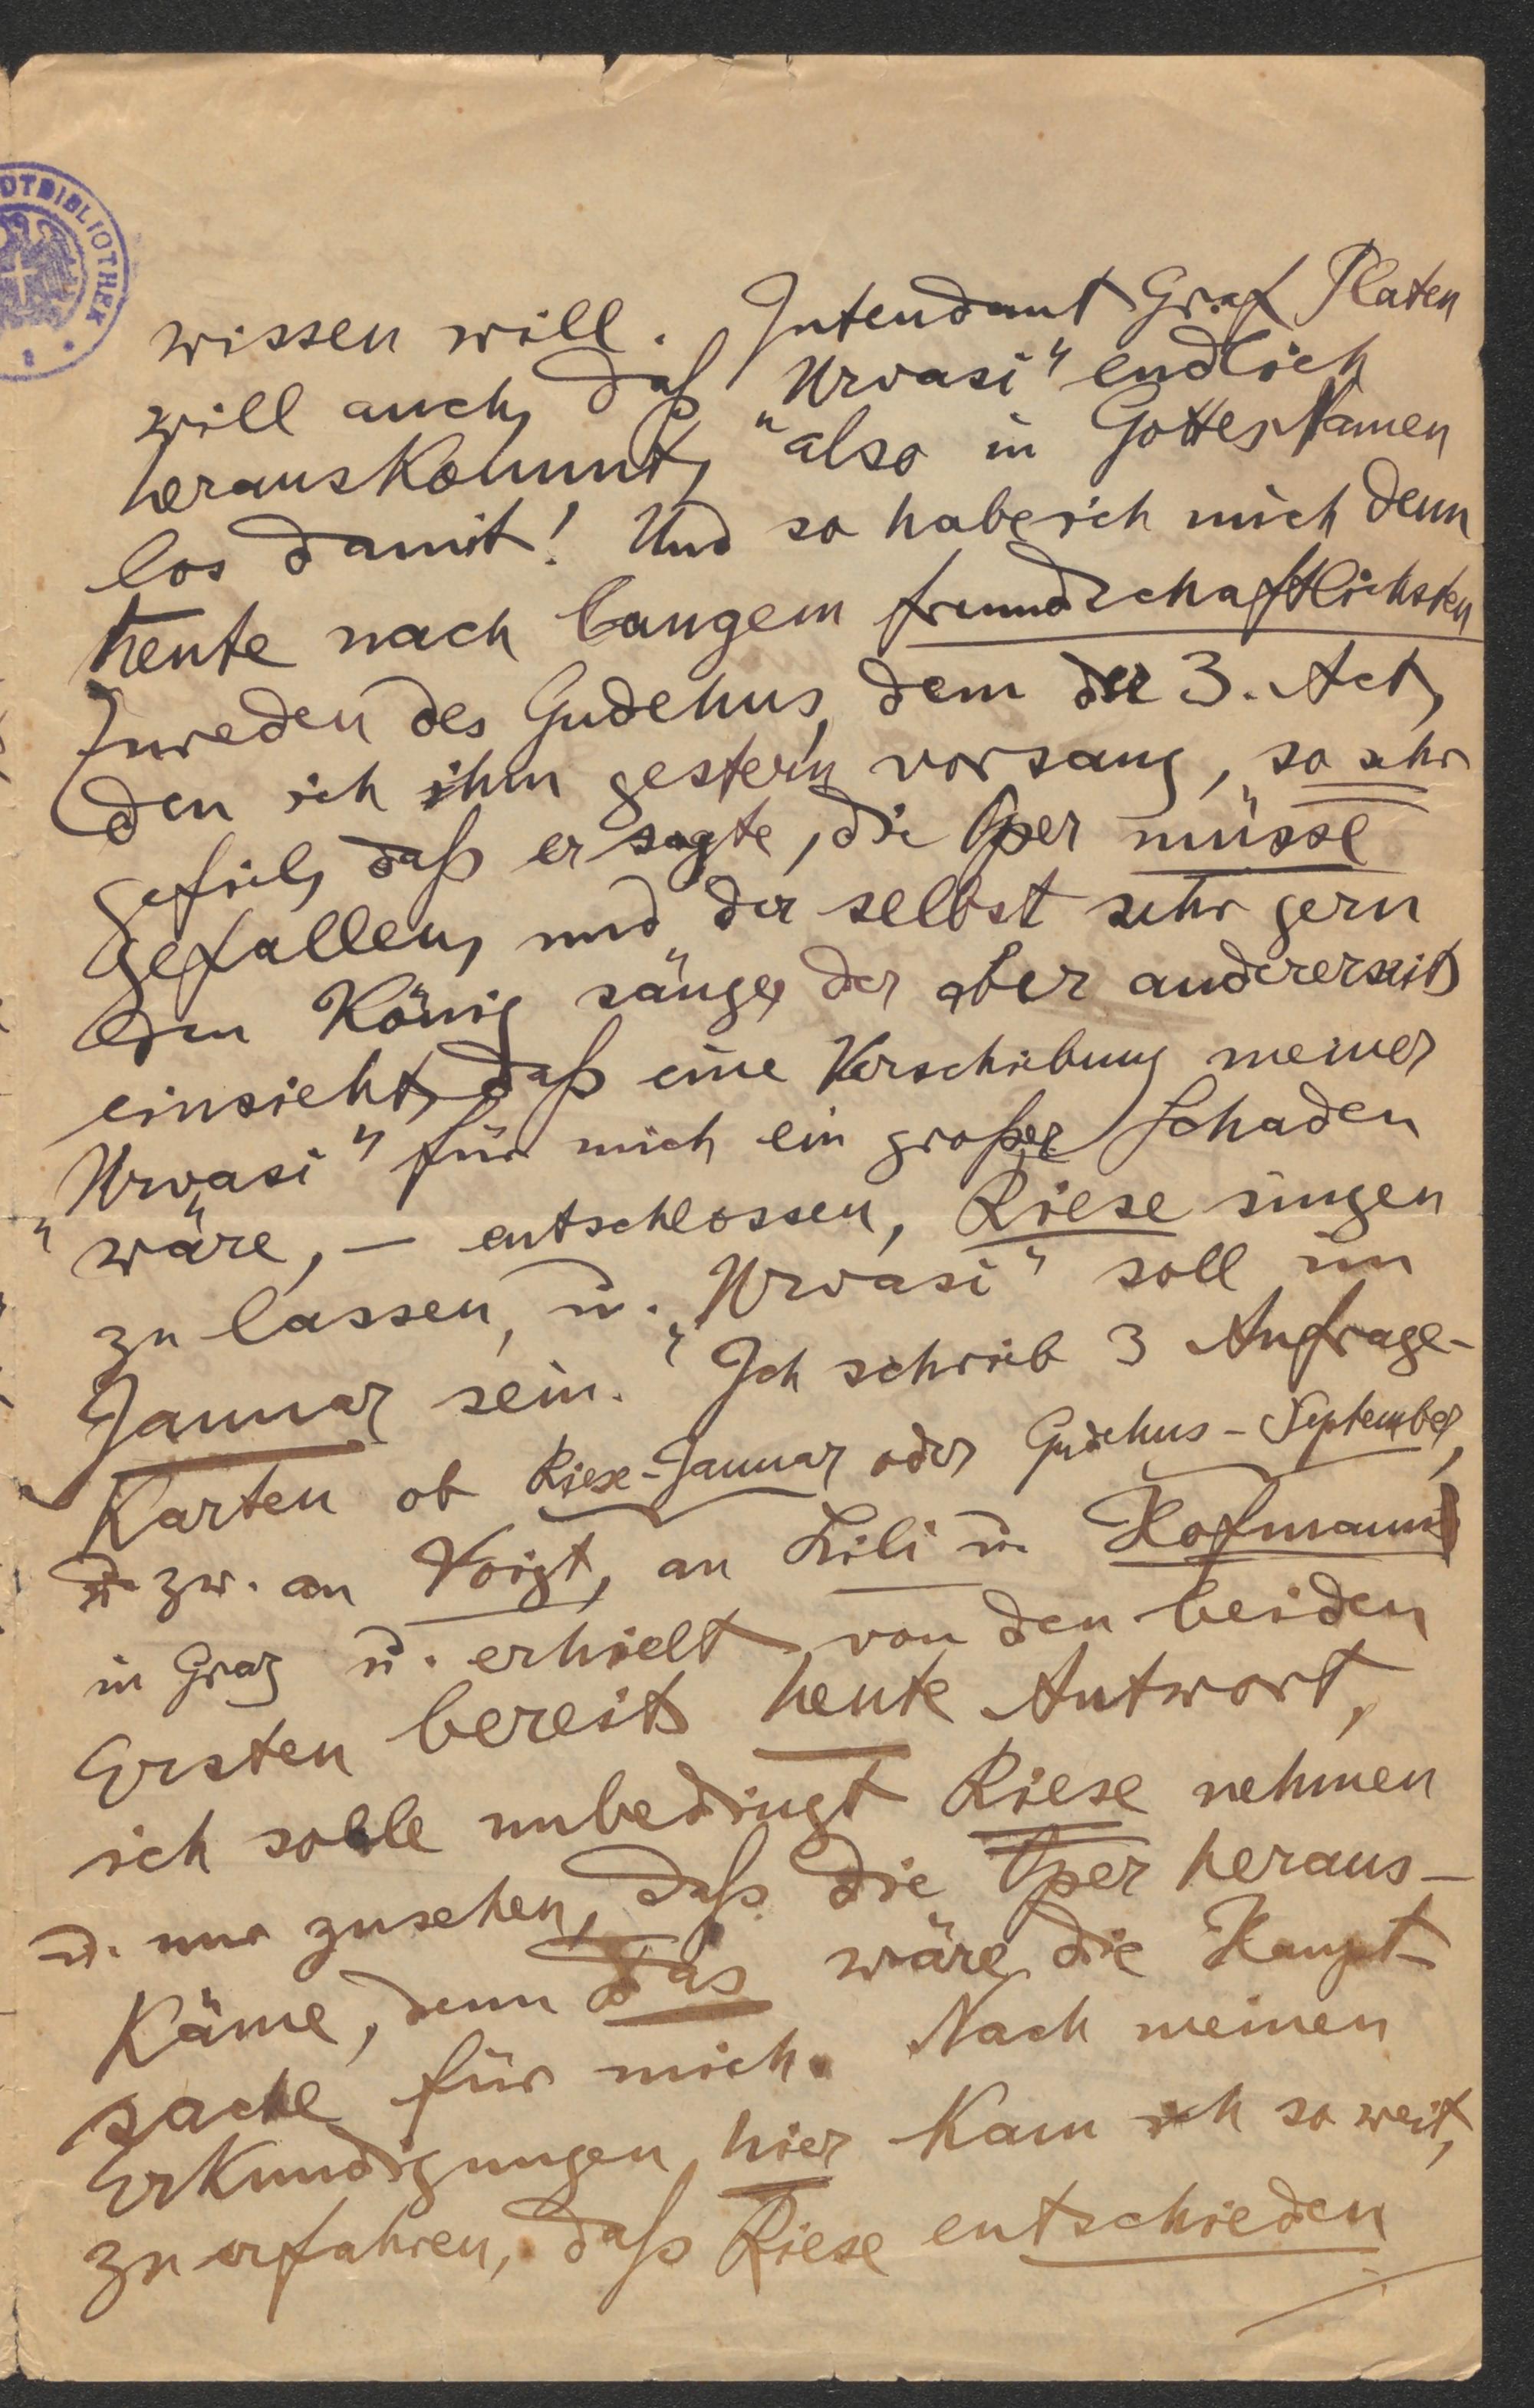 DTBIBLIOTHEK
wissen will. Intendant Graf Platen
will auch, daß „Urvasi" endlich
herauskommt, also in Gottes Namen
los damit! Und so habe ich mich denn
heute nach langem freundschaftlichsten
Zureden des Gudehus, dem der 3. Act,
den ich ihm gestern vorsang, so sehr
gefiel, daß er sagte, die Oper müsse
gefallen, und der selbst sehr gern
den König sänge, der aber andererseits
einsieht, daß eine Verschiebung meiner
„Urvasi" für mich ein großer Schaden
wäre, — entschlossen, Riese singen
zu lassen, u. „Urvasi" soll im
Januar sein. Ich schrieb 3 Anfrage-
Karten ob Riese-Januar oder Gudehus-September,
u. zw. an Voigt, an Lili u. Hofmann
in Graz u. erhielt von den beiden
Ersten bereits heute Antwort,
ich solle unbedingt Riese nehmen
u. nur zusehen, daß die Oper heraus-
käme, denn das wäre die Haupt-
sache für mich. Nach meinen
Erkundigungen hier kam ich so weit,
zu erfahren, daß Riese entschieden